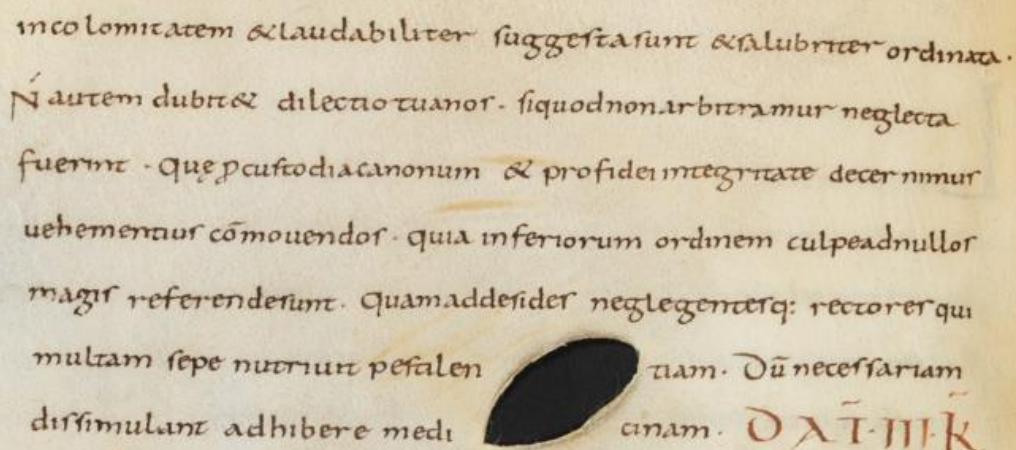 incolomitatem & laudabiliter suggesta sunt & salubriter ordinata.
Ń autem dubit& dilectio tua nos. si quod non arbitramur neglecta
fuerint. Quę ꝓ custodia canonum & pro fidei integritate decernimus
uehementius cōmouendos. quia inferiorum ordinem culpe ad nullos
magis referende sunt. Quam ad desides neglegentesq: rectores qui
multam sepe nutriunt pestilentiam. Dū necessariam
dissimulant adhibere medicinam. DAT̄·III·K̄